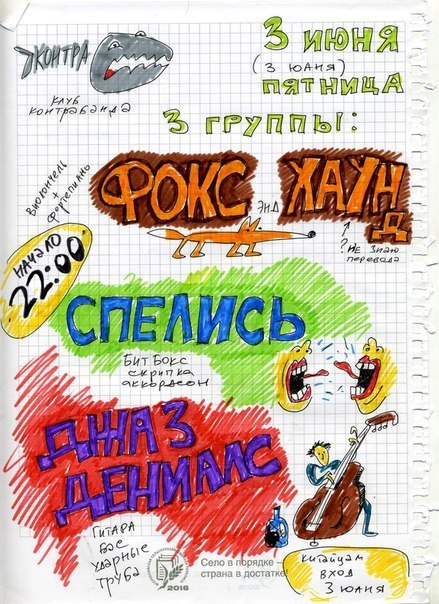 ЭКОНТРА
клуб
контрабанда
3 июня
(3 юаня)
пятница
3 группы:
Виолончель
+
Фортепиано
ФОКС энд ХАУНД
? не знаю
перевода
начало
22:00
СПЕЛИСЬ
Битбокс
скрипка
аккордеон
ДЖАЗ
ДЕНИАЛС
Гитара
бас
ударные
труба
2016
Село в порядке –
страна в достатке!
китайцам
вход
3 юаня